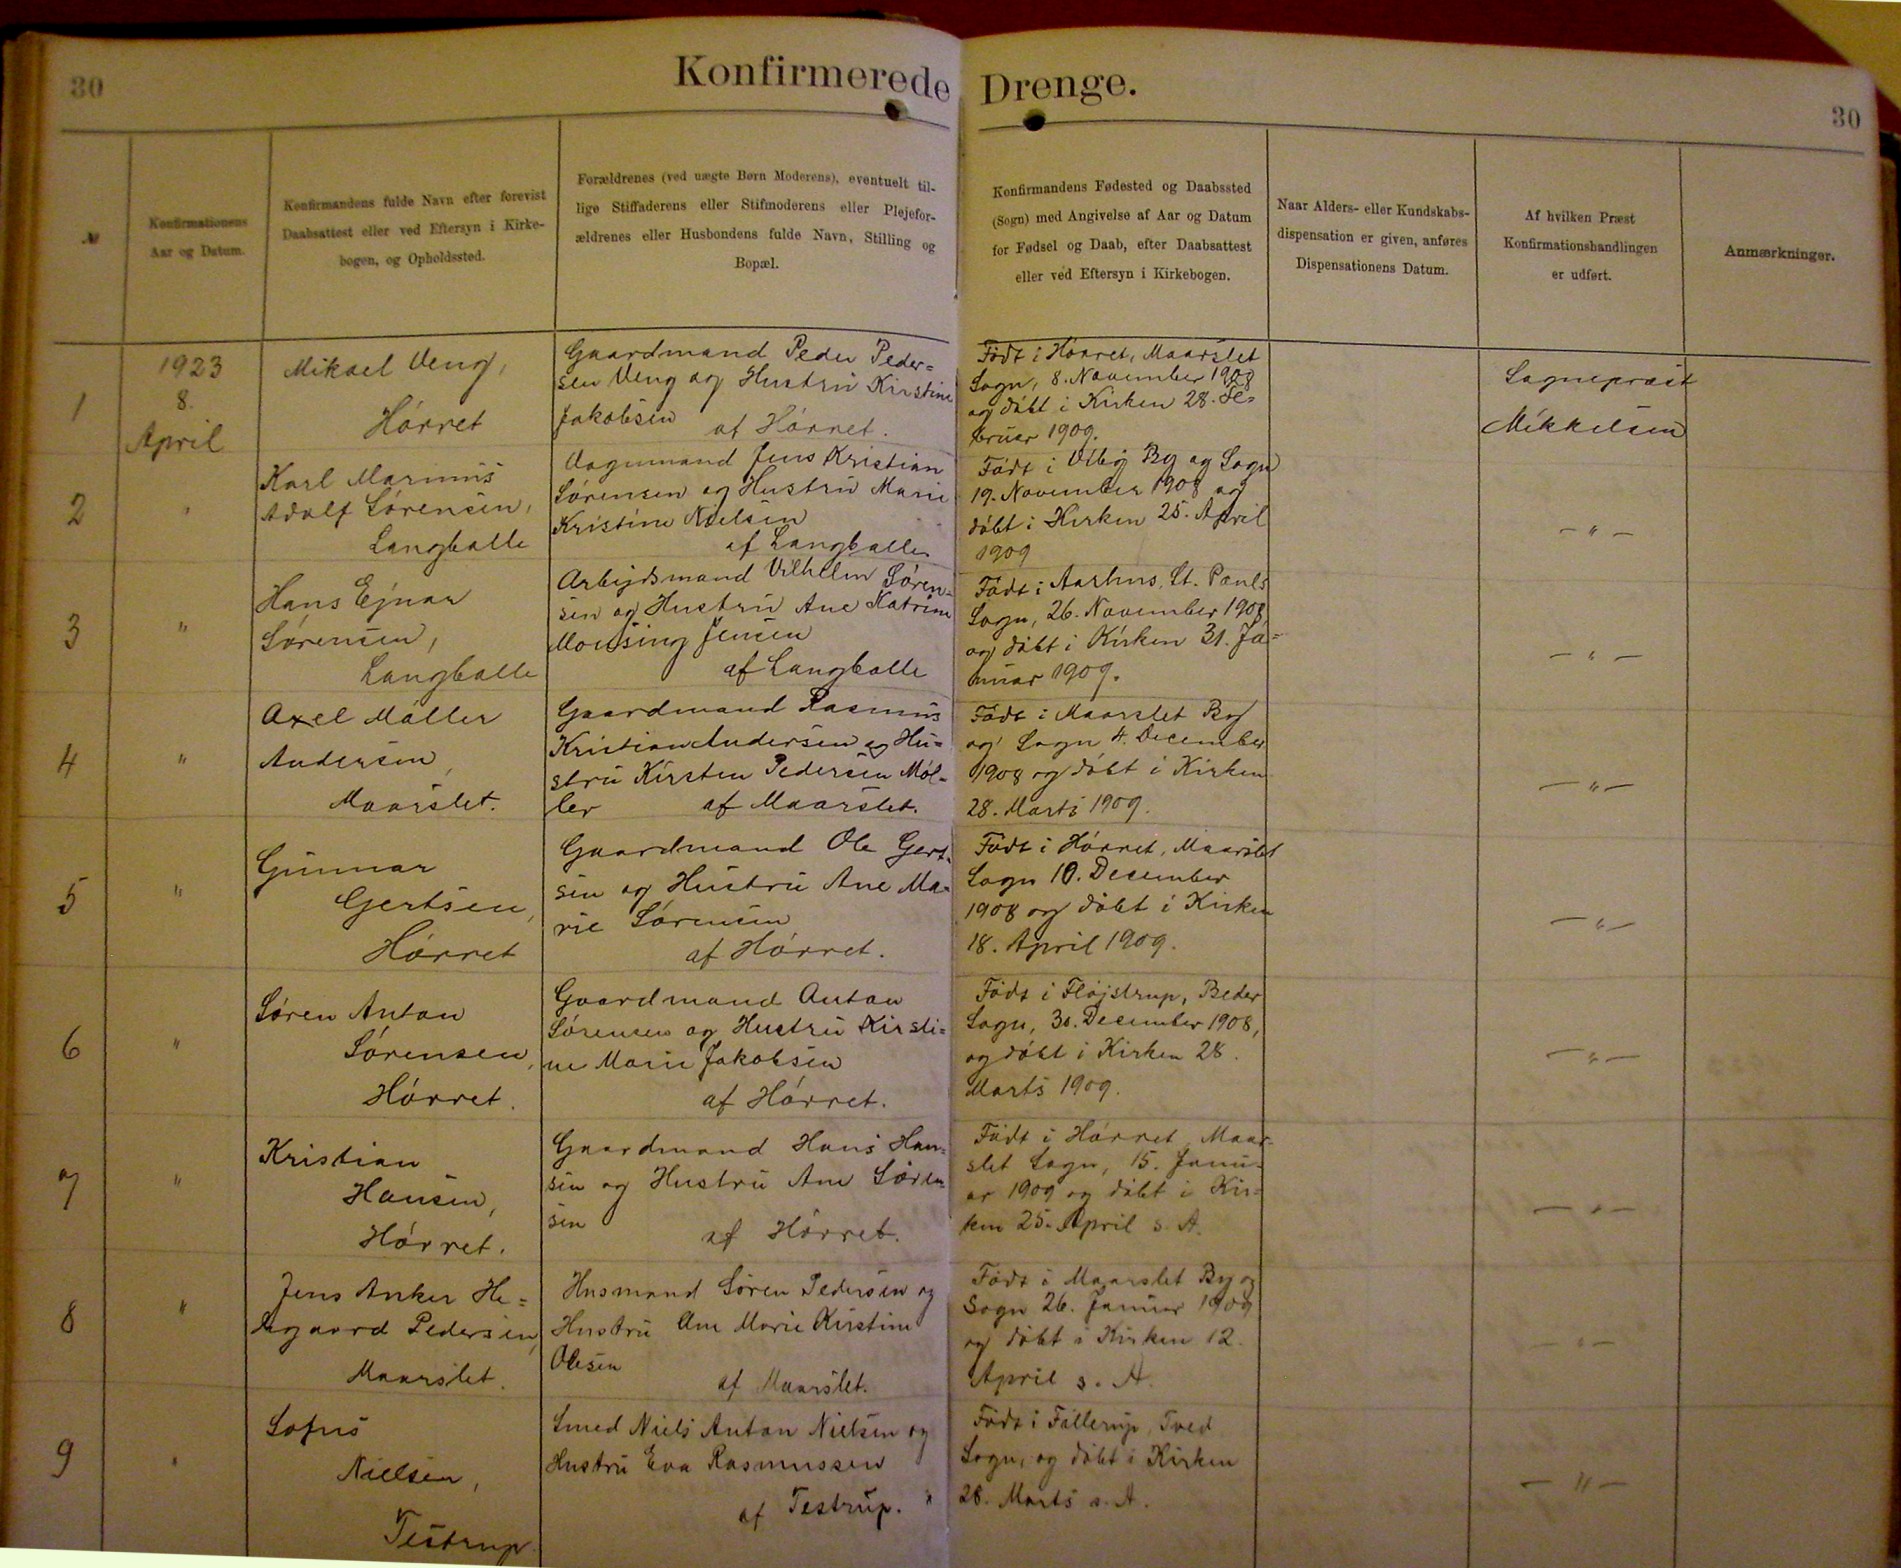 30
Konfirmerede Drenge.
30
№
Konfirmationens
Aar og Datum.
Konfirmandens fulde Navn efter forevist
Daabsattest eller ved Eftersyn i Kirke-
bogen, og Opholdssted.
Forældrenes (ved uægte Børn Moderens), eventuelt til-
lige Stiffaderens eller Stifmoderens eller Plejefor-
ældrenes eller Husbondens fulde Navn, Stilling og
Bopæl.
Konfirmandens Fødested og Daabssted
(Sogn) med Angivelse af Aar og Datum
for Fødsel og Daab, efter Daabsattest
eller ved Eftersyn i Kirkebogen.
Naar Alders- eller Kundskabs-
dispensation er given, anføres
Dispensationens Datum.
Af hvilken Præst
Konfirmationshandlingen
er udført.
Anmærkninger.
1
1923
8.
April
Mikael Veng,
Hörret
Gaardmand Peder Peder=
sen Veng og Hustru Kirstine
Jakobsen af Hörret.
Födt i Hörret, Maarslet
Sogn, 8. November 1908
og döbt i Kirken 28. Fe=
bruar 1909.
Sognepræst
Mikkelsen
2
"
Karl Marinus
Adolf Sörensen,
Langballe
Vognmand Jens Kristian
Sörensen og Hustru Marie
Kristine Nielsen
af Langballe
Födt i Viby By og Sogn
19. November 1908 og
döbt i Kirken 25. April
1909
— " —
3
"
Hans Ejnar
Sörensen,
Langballe
Arbejdsmand Vilhelm Sören=
sen og Hustru Ane Katrine
Monsing Jensen
af Langballe
Födt i Aarhus, St. Pauls
Sogn, 26. November 1908
og döbt i Kirken 31. Ja=
nuar 1909.
— " —
4
"
Axel Möller
Andersen,
Maarslet.
Gaardmand Rasmus
Kristian Andersen og Hu=
stru Kirsten Pedersen Möl-
ler af Maarslet.
Födt i Maarslet By
og Sogn 4. December
1908 og döbt i Kirken
28. Marts 1909.
— " —
5
"
Gunnar
Gertsen,
Hörret
Gaardmand Ole Gert-
sen og Hustru Ane Ma-
rie Sörensen
af Hörret.
Födt i Hörret, Maarslet
Sogn 10. December
1908 og döbt i Kirken
18. April 1909.
— " —
6
"
Sören Anton
Sörensen,
Hörret.
Gaardmand Anton
Sörensen og Hustru Kirsti=
ne Marie Jakobsen
af Hörret.
Födt i Flöjstrup, Beder
Sogn, 30. December 1908,
og döbt i Kirken 28.
Marts 1909.
— " —
7
"
Kristian
Hansen,
Hörret.
Gaardmand Hans Han=
sen og Hustru Ane Sören-
sen
af Hörret.
Födt i Hörret Maar-
slet Sogn, 15. Janu-
ar 1909 og döbt i Kir=
ken 25. April s. A.
— " —
8
"
Jens Anker He=
degaard Pedersen,
Maarslet.
Husmand Sören Pedersen og
Hustru Ane Marie Kirstine
Olesen
af Maarslet.
Födt i Maarslet By og
Sogn 26. Januar 1909
og döbt i Kirken 12.
April s. A.
— " —
9
"
Sofus
Nielsen,
Testrup
Smed Niels Anton Nielsen og
Hustru Eva Rasmussen
af Testrup. "
Födt i Fillerup, Tved
Sogn, og döbt i Kirken
28. Marts s. A.
— " —